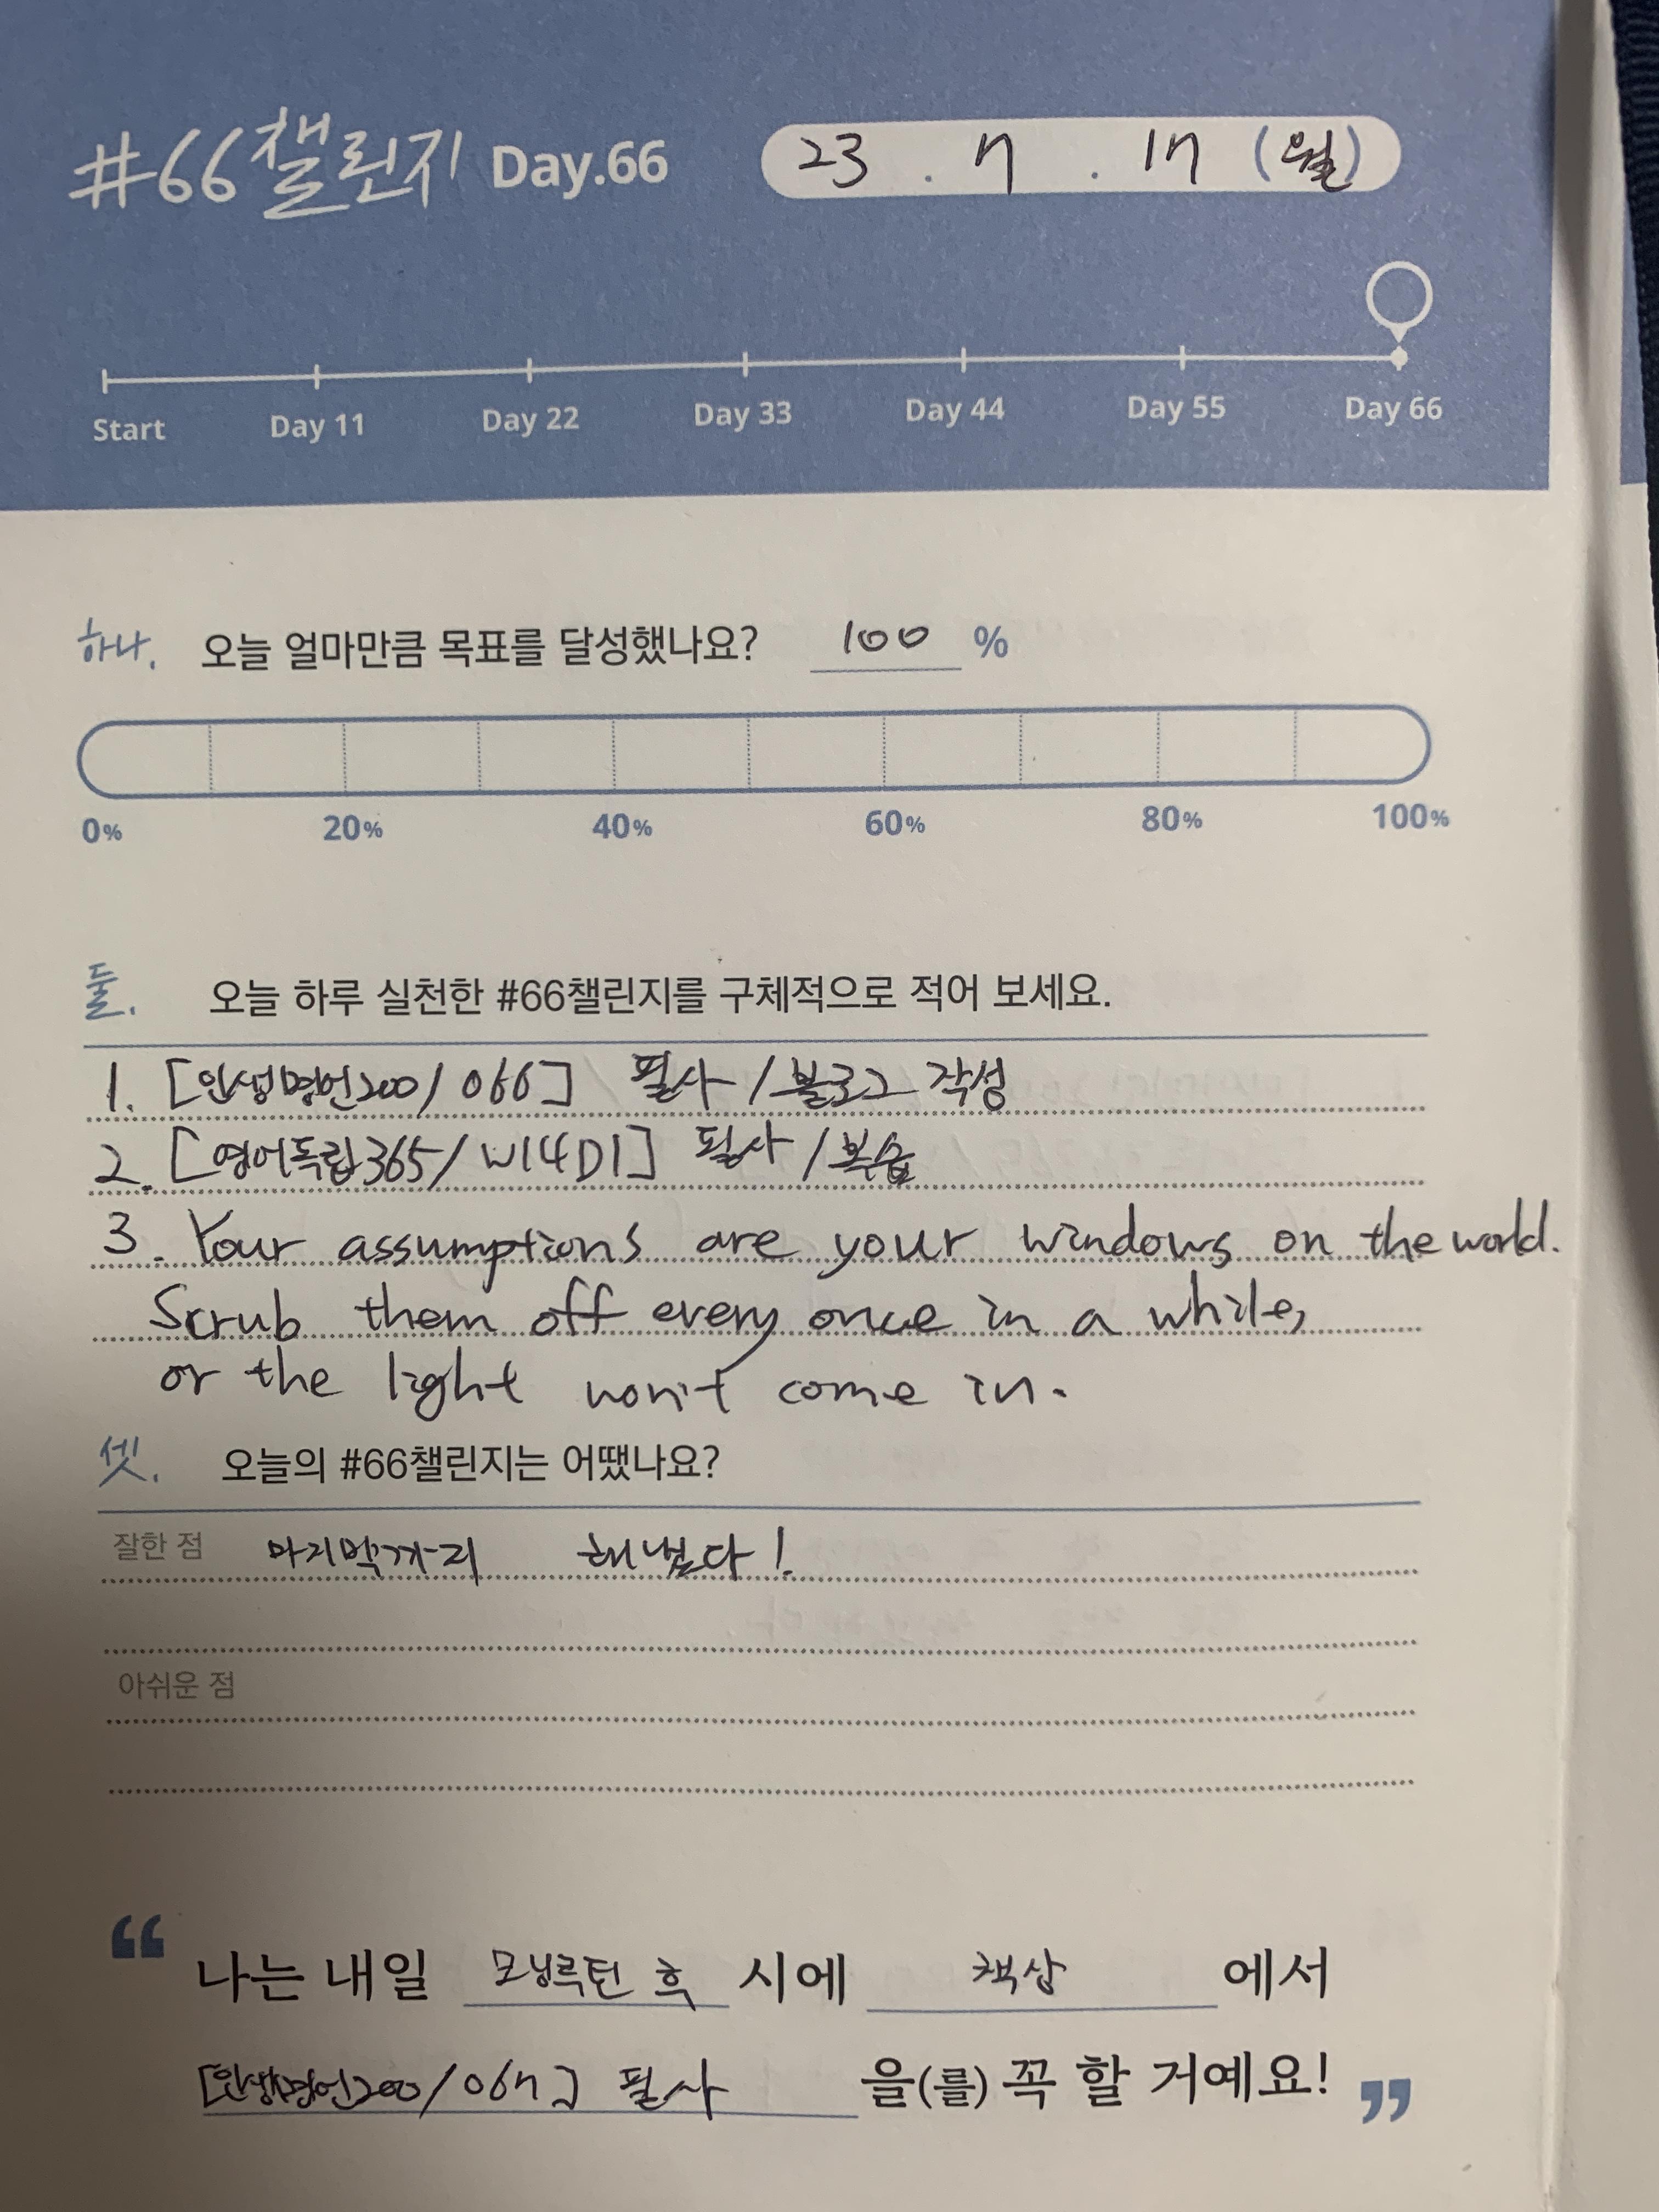 #66챌린지 Day.66 23 . 7 . 17 (월)
Start Day 11 Day 22 Day 33 Day 44 Day 55 Day 66
하나. 오늘 얼마만큼 목표를 달성했나요? 100 %
0% 20% 40% 60% 80% 100%
둘. 오늘 하루 실천한 #66챌린지를 구체적으로 적어 보세요.
1. [인생명언200/066] 필사/블로그 작성
2. [영어독립365/W14D1] 필사/복습
3. Your assumptions are your windows on the world.
Scrub them off every once in a while,
or the light won't come in.
셋. 오늘의 #66챌린지는 어땠나요?
잘한 점 마지막까지 해냈다!
아쉬운 점
“ 나는 내일 모닝루틴 후 시에 책상 에서
[인생명언200/067] 필사 을(를) 꼭 할 거예요! ”